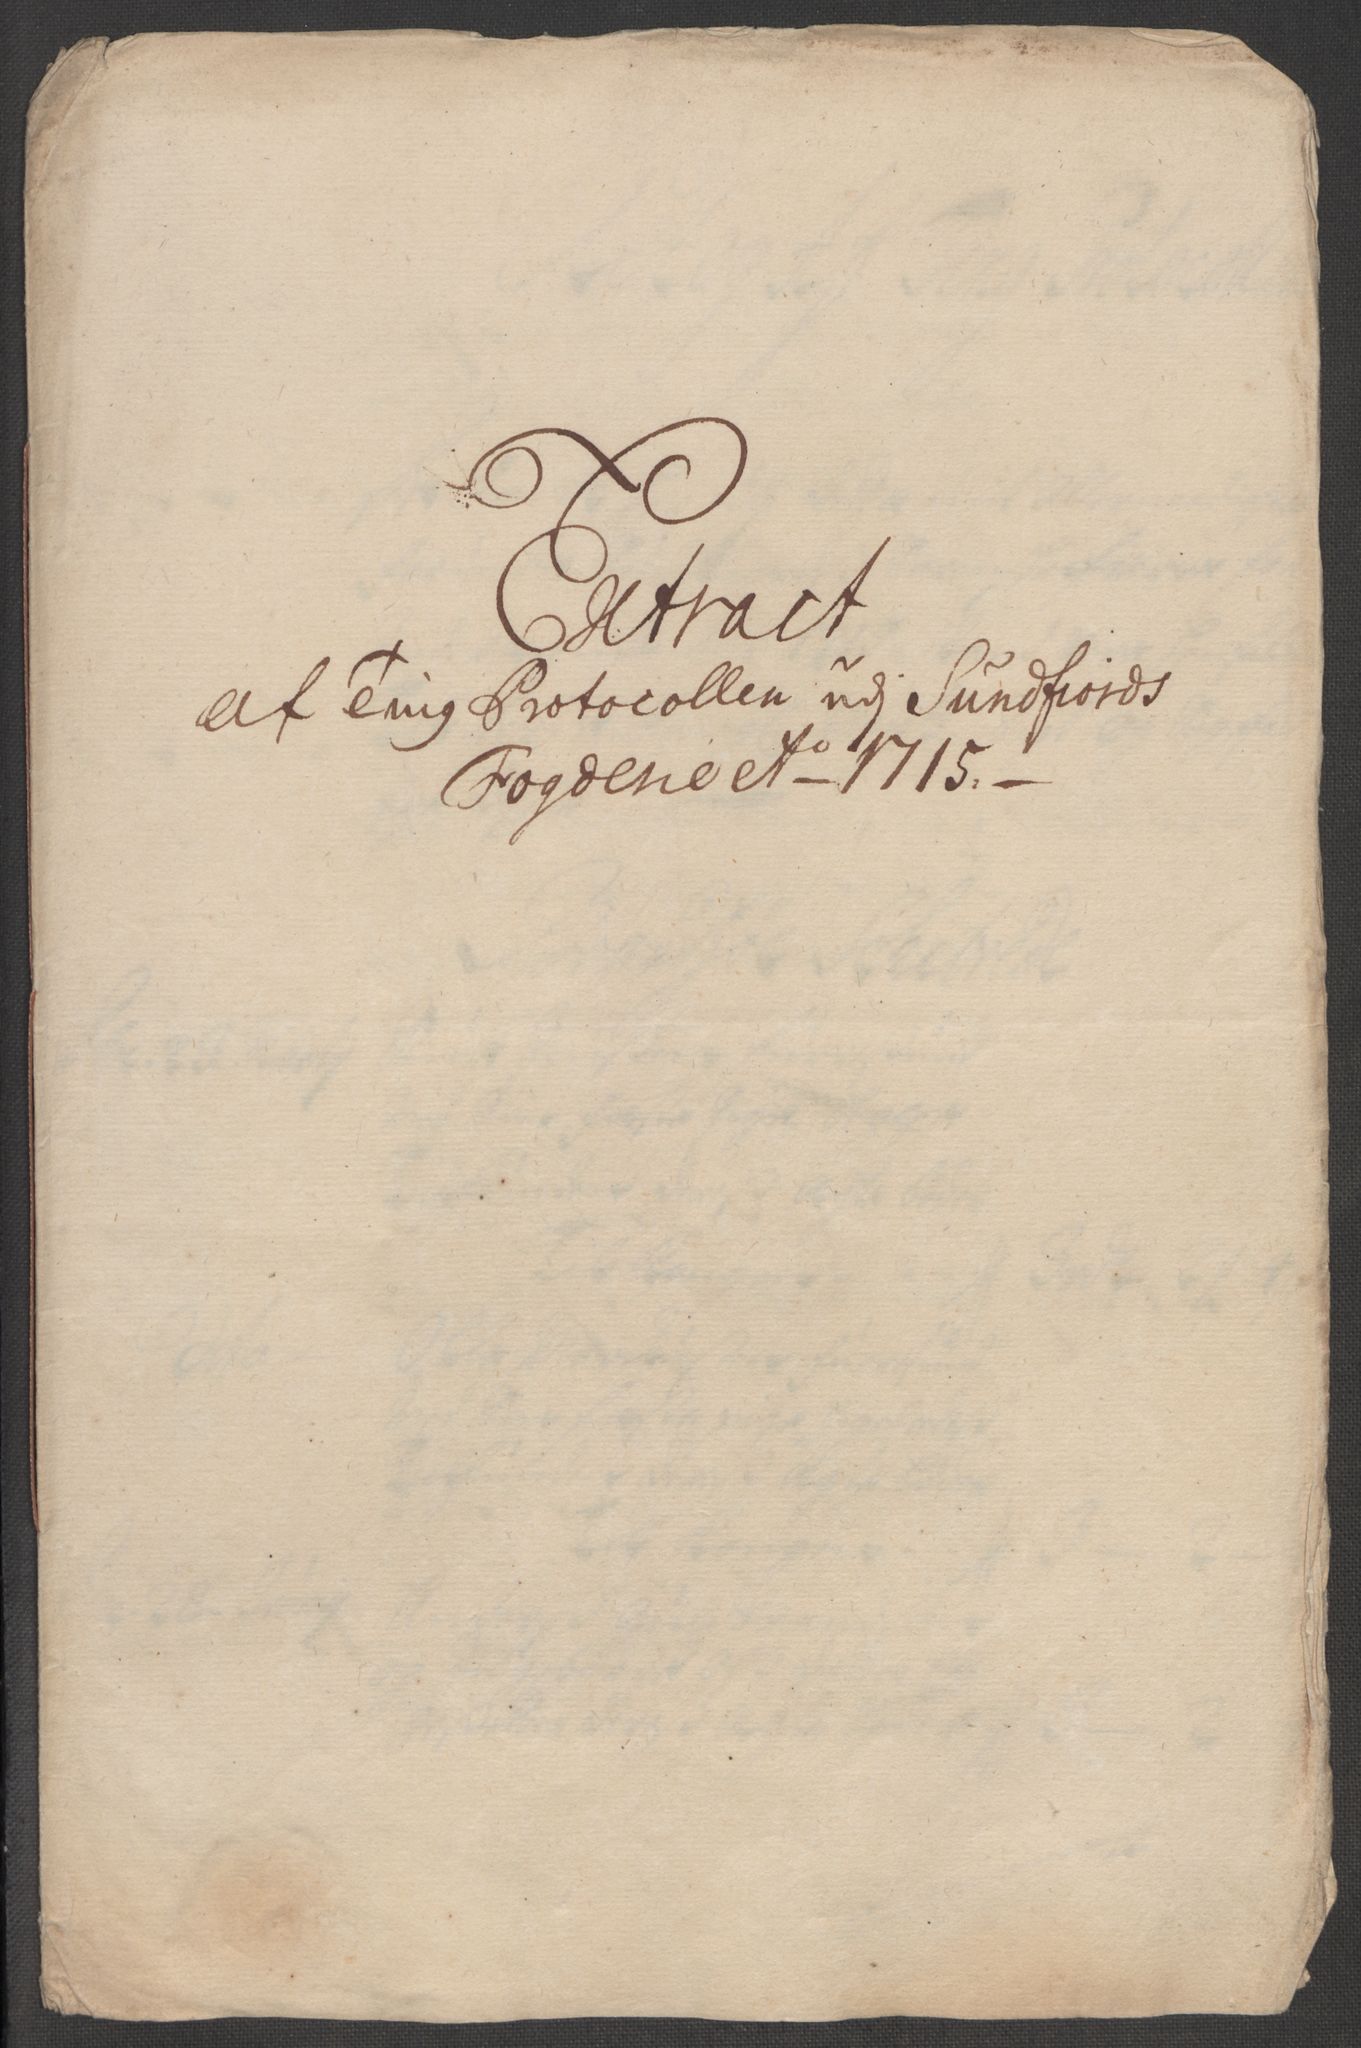 Extract
af Ting Protocollen udj Sundfiords
Fogderie Ao 1715.